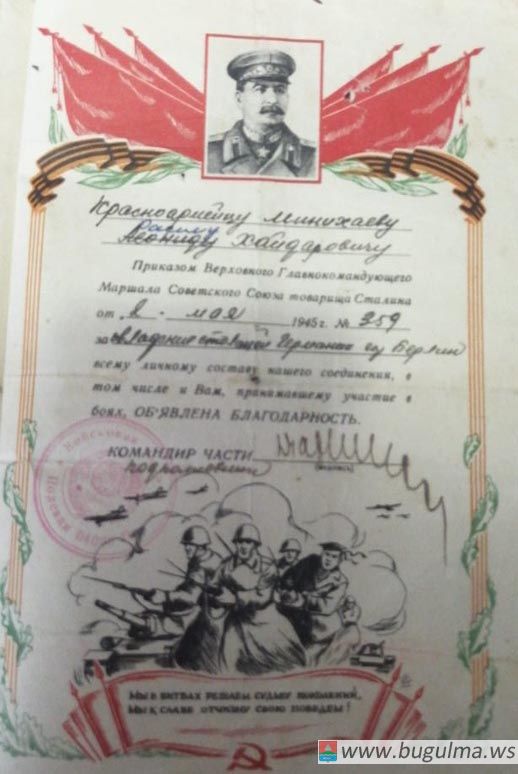 Красноармейцу Минихаеву
Расиму
Леониду Хайдаровичу
Приказом Верховного Главнокомандующего
Маршала Советского Союза товарища Сталина
от 2 - мая 1945 г. № 359
за овладение столицей Германии гор Берлин
всему личному составу нашего соединения, в
том числе и Вам, принимавшему участие в
боях, ОБ'ЯВЛЕНА БЛАГОДАРНОСТЬ.
КОМАНДИР ЧАСТИ
подполковник
(подпись)
Войсковая
Полевая
МЫ В БИТВАХ РЕШАЕМ СУДЬБУ ПОКОЛЕНИЙ,
МЫ К СЛАВЕ ОТЧИЗНУ СВОЮ ПОВЕДЕМ!
www.bugulma.ws